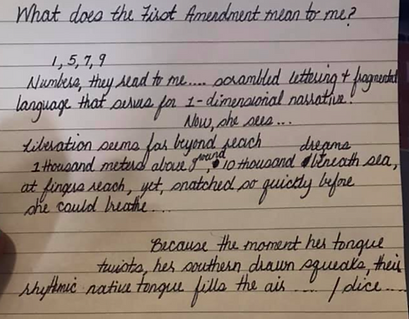 What does the First Amendment mean to me?
1, 5, 7, 9
Numbers, they read to me.... scrambled lettering + fragmented
language that serves for 1-dimensional narrative!
Now, she sees...
Liberation seems far beyond reach dreams
1 thousand meters above ground, 10 thousand beneath sea,
at fingers reach, yet, snatched so quickly before
she could breathe...
Because the moment her tongue
twists, her southern drawn squeaks, their
rhythmic native tongue fills the air ..... / dice ....